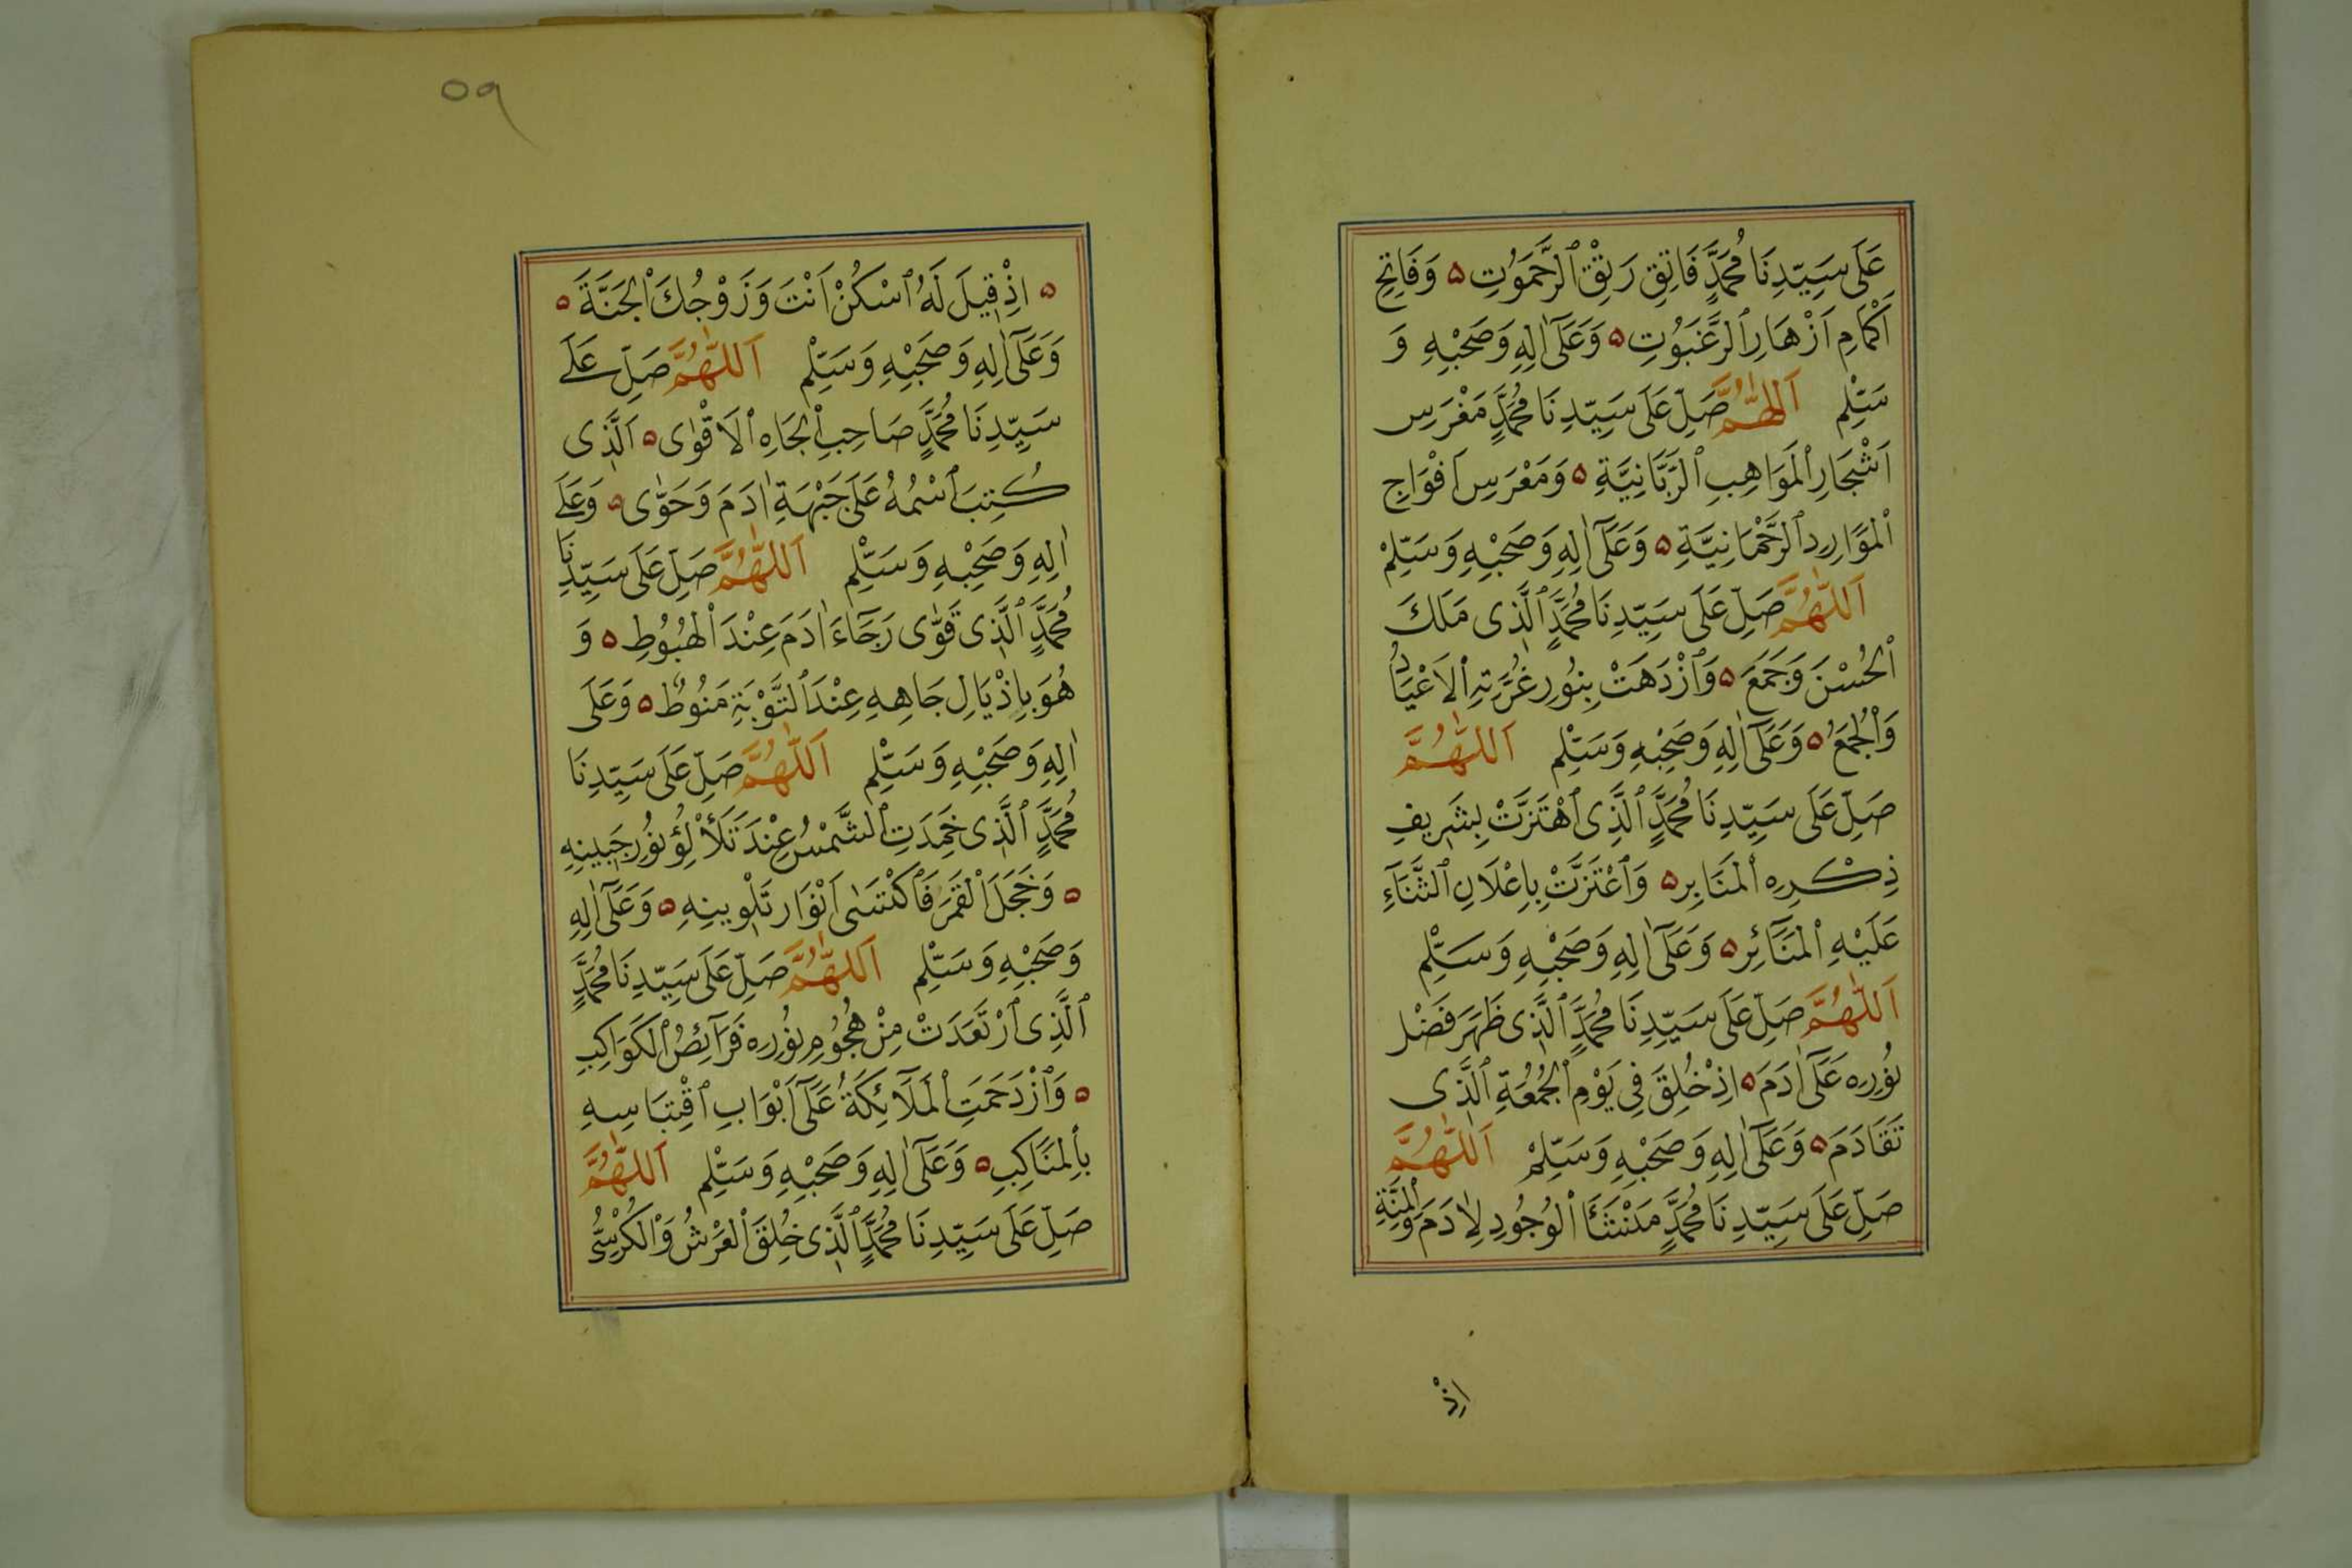 عَلَى سَيِّدِنَا مُحَمَّدٍ فَاتِقِ رَتِقْ ٱلرَّحَمُوتِ ۝ وَفَاتِحِ
اَكْمَامِ اَزْهَارِ ٱلرَّغَبُوتِ ۝ وَعَلَىٓ اٰلِهِ وَصَحْبِهِ وَ
سَلِّمْ اَللّٰهُمَّ صَلِّ عَلَى سَيِّدِنَا مُحَمَّدٍ مَغْرَسِ
اَشْجَارِ ٱلْمَوَاهِبِ ٱلرَّبَّانِيَّةِ ۝ وَمَعْرَسِ اَفْوَاجِ
ٱلْمَوَارِدِ ٱلرَّحْمَانِيَّةِ ۝ وَعَلَىٓ اٰلِهِ وَصَحْبِهِ وَسَلِّمْ
اَللّٰهُمَّ صَلِّ عَلَى سَيِّدِنَا مُحَمَّدٍ ٱلَّذِى مَلَكَ
ٱلْحُسْنَ وَجَمَعَ ۝ وَٱزْدَهَتْ بِنُورِ غُرَّتِهِ ٱلْاَعْيَادُ
وَٱلْجُمَعُ ۝ وَعَلَىٓ اٰلِهِ وَصَحْبِهِ وَسَلِّمْ اَللّٰهُمَّ
صَلِّ عَلَى سَيِّدِنَا مُحَمَّدٍ ٱلَّذِى ٱهْتَزَّتْ بِشَرِيفِ
ذِكْرِهِ ٱلْمَنَابِر ۝ وَٱعْتَزَّتْ بِاِعْلَانِ ٱلثَّنَآءِ
عَلَيْهِ ٱلْمَنَآئِر ۝ وَعَلَىٓ اٰلِهِ وَصَحْبِهِ وَسَلِّمْ
اَللّٰهُمَّ صَلِّ عَلَى سَيِّدِنَا مُحَمَّدٍ ٱلَّذِى ظَهَرَ فَضْل
نُورِهِ عَلَىٓ اٰدَمَ ۝ اِذْ خُلِقَ فِى يَوْمِ ٱلْجُمُعَةِ ٱلَّذِى
تَقَادَمَ ۝ وَعَلَىٓ اٰلِهِ وَصَحْبِهِ وَسَلِّمْ اَللّٰهُمَّ
صَلِّ عَلَى سَيِّدِنَا مُحَمَّدٍ مَنْشَئَا ٱلْوُجُودِ لِاٰدَمَ وَٱلْمِنَّةِ
اِذْ
٥٩
۝ اِذْ قِيلَ لَهُ ٱسْكُنْ اَنْتَ وَزَوْجُكَ ٱلْجَنَّةَ ۝
وَعَلَىٓ اٰلِهِ وَصَحْبِهِ وَسَلِّمْ اَللّٰهُمَّ صَلِّ عَلَى
سَيِّدِنَا مُحَمَّدٍ صَاحِبِ ٱلْجَاهِ ٱلْاَقْوٰى ۝ اَلَّذِى
كُتِبَ ٱسْمُهُ عَلَى جَبْهَةِ اٰدَمَ وَحَوّٰى ۝ وَعَلَى
اٰلِهِ وَصَحْبِهِ وَسَلِّمْ اَللّٰهُمَّ صَلِّ عَلَى سَيِّدِنَا
مُحَمَّدٍ ٱلَّذِى قَوّٰى رَجَآءَ اٰدَمَ عِنْدَ ٱلْهُبُوُطِ ۝ وَ
هُوَ بِاِذْيَالِ جَاهِهِ عِنْدَ ٱلتَّوْبَةِ مَنُوُطٌ ۝ وَعَلَى
اٰلِهِ وَصَحْبِهِ وَسَلِّمْ اَللّٰهُمَّ صَلِّ عَلَى سَيِّدِنَا
مُحَمَّدٍ ٱلَّذِى خَمِدَتِ ٱلشَّمْسُ عِنْدَ تَلَأْلُؤِ نُورِ جَبِينِهِ
۝ وَخَجَلَ ٱلْقَمَرَ فَٱكْتَسٰى اَنْوَار تَلْوِينِهِ ۝ وَعَلَىٓ اٰلِهِ
وَصَحْبِهِ وَسَلِّمْ اَللّٰهُمَّ صَلِّ عَلَى سَيِّدِنَا مُحَمَّدٍ
ٱلَّذِى ٱرْتَعَدَتْ مِنْ هُجُوُمِ نُورِهِ فَرَآئِصُ ٱلْكَوَاكِبِ
۝ وَٱزْدَحَمَتِ ٱلْمَلَآئِكَةُ عَلَىٓ اَبْوَابِ ٱقْتِبَاسِهِ
بِٱلْمَنَاكِبِ ۝ وَعَلَىٓ اٰلِهِ وَصَحْبِهِ وَسَلِّمْ اَللّٰهُمَّ
صَلِّ عَلَى سَيِّدِنَا مُحَمَّدٍ ٱلَّذِى خُلِقَ ٱلْعَرْشُ وَٱلْكُرْسُّى